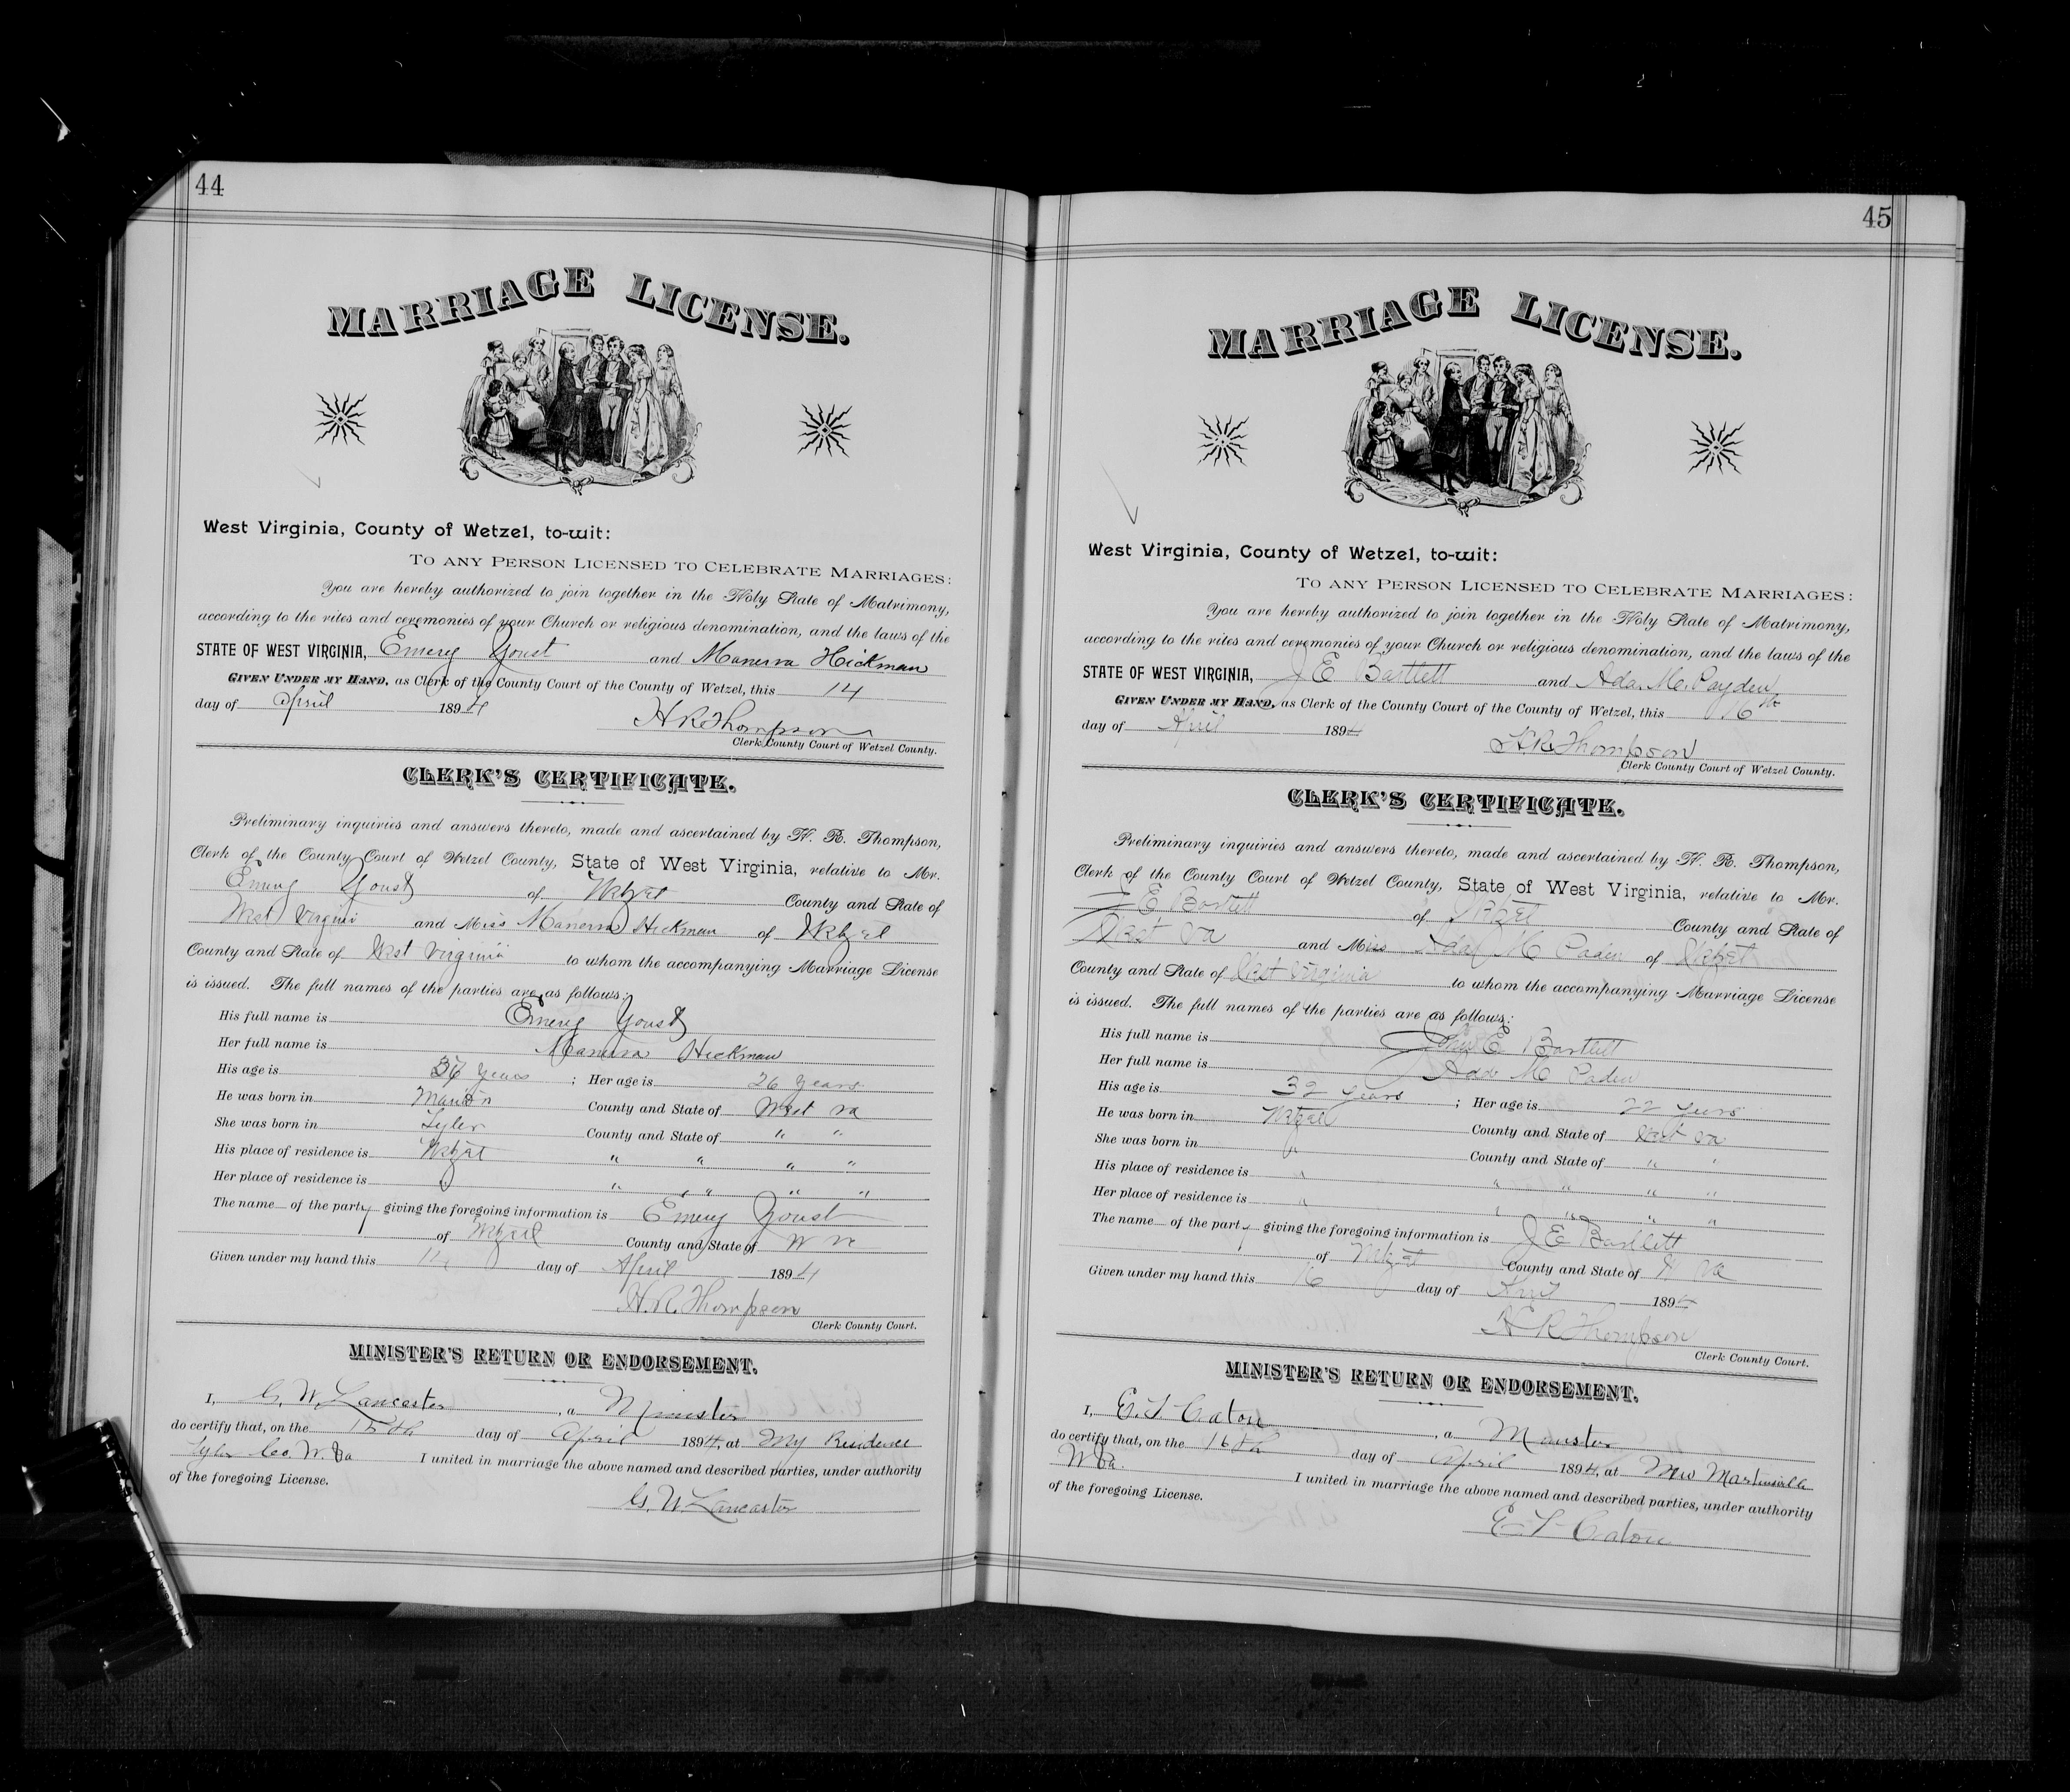 44
MARRIAGE LICENSE.
West Virginia, County of Wetzel, to-wit:
TO ANY PERSON LICENSED TO CELEBRATE MARRIAGES:
You are hereby authorized to join together in the Holy State of Matrimony,
according to the rites and ceremonies of your Church or religious denomination, and the laws of the
STATE OF WEST VIRGINIA, Emery Youst and Manerva Hickman
GIVEN UNDER MY HAND, as Clerk of the County Court of the County of Wetzel, this 14
day of April 1894
H R Thompson
Clerk County Court of Wetzel County.
CLERK'S CERTIFICATE.
Preliminary inquiries and answers thereto, made and ascertained by H. R. Thompson,
Clerk of the County Court of Wetzel County, State of West Virginia, relative to Mr.
Emery Youst of Wetzel County and State of
West Virginia and Miss Manerva Hickman of Wetzel
County and State of West Virginia to whom the accompanying Marriage License
is issued. The full names of the parties are as follows:
His full name is Emery Youst
Her full name is Manerva Hickman
His age is years ; Her age is 26 years
He was born in Marion County and State of West Va
She was born in Tyler County and State of " "
His place of residence is Wetzel " " " "
Her place of residence is " " " " "
The name of the party giving the foregoing information is Emery Youst
of Wetzel County and State of W Va
Given under my hand this day of April 1894
H. R. Thompson
Clerk County Court.
MINISTER'S RETURN OR ENDORSEMENT.
I, G. W. Lancaster, a Minister
do certify that, on the 15th day of April 1894, at My Residence
Tyler Co. W. Va I united in marriage the above named and described parties, under authority
of the foregoing License.
G. W. Lancaster
45
MARRIAGE LICENSE.
West Virginia, County of Wetzel, to-wit:
TO ANY PERSON LICENSED TO CELEBRATE MARRIAGES:
You are hereby authorized to join together in the Holy State of Matrimony,
according to the rites and ceremonies of your Church or religious denomination, and the laws of the
STATE OF WEST VIRGINIA, J E Bartlett and Ada. M. Payden
GIVEN UNDER MY HAND, as Clerk of the County Court of the County of Wetzel, this 16th
day of April 1894
H. R. Thompson
Clerk County Court of Wetzel County.
CLERK'S CERTIFICATE.
Preliminary inquiries and answers thereto, made and ascertained by H. R. Thompson,
Clerk of the County Court of Wetzel County, State of West Virginia, relative to Mr.
J E Bartlett of Wetzel County and State of
West Va and Miss Ada M Paden of Wetzel
County and State of West Virginia to whom the accompanying Marriage License
is issued. The full names of the parties are as follows:
His full name is John E Bartlett
Her full name is Ada M Paden
His age is 32 years ; Her age is 22 years
He was born in Wetzel County and State of West Va
She was born in " County and State of " "
His place of residence is " " " " "
Her place of residence is " " " " "
The name of the party giving the foregoing information is J E Bartlett
of Wetzel County and State of W Va
Given under my hand this 16 day of April 1894
H R Thompson
Clerk County Court.
MINISTER'S RETURN OR ENDORSEMENT.
I, E. T. Caton, a Minster
do certify that, on the 16th day of April 1894, at New Martinsville
W Va. I united in marriage the above named and described parties, under authority
of the foregoing License.
E T Caton